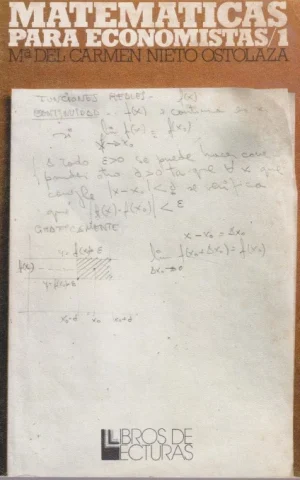 MATEMATICAS
PARA ECONOMISTAS/1
Mª DEL CARMEN NIETO OSTOLAZA
FUNCIONES REALES - f(x)
CONTINUIDAD - f(x) continua en x₀
si lim f(x) = f(x₀)
x→x₀
A todo ε>0 se puede hacer
otro δ>0 tal que ∀ x que
cumpla |x-x₀|<δ se
que |f(x)-f(x₀)|<ε
GRAFICAMENTE
x - x₀ = Δx₀
y = f(x₀)+ε
lim f(x₀+Δx₀) = f(x₀)
Δx₀→0
f(x₀)
y = f(x₀)-ε
x₀-δ x₀ x₀+δ
LIBROS DE
LECTURAS